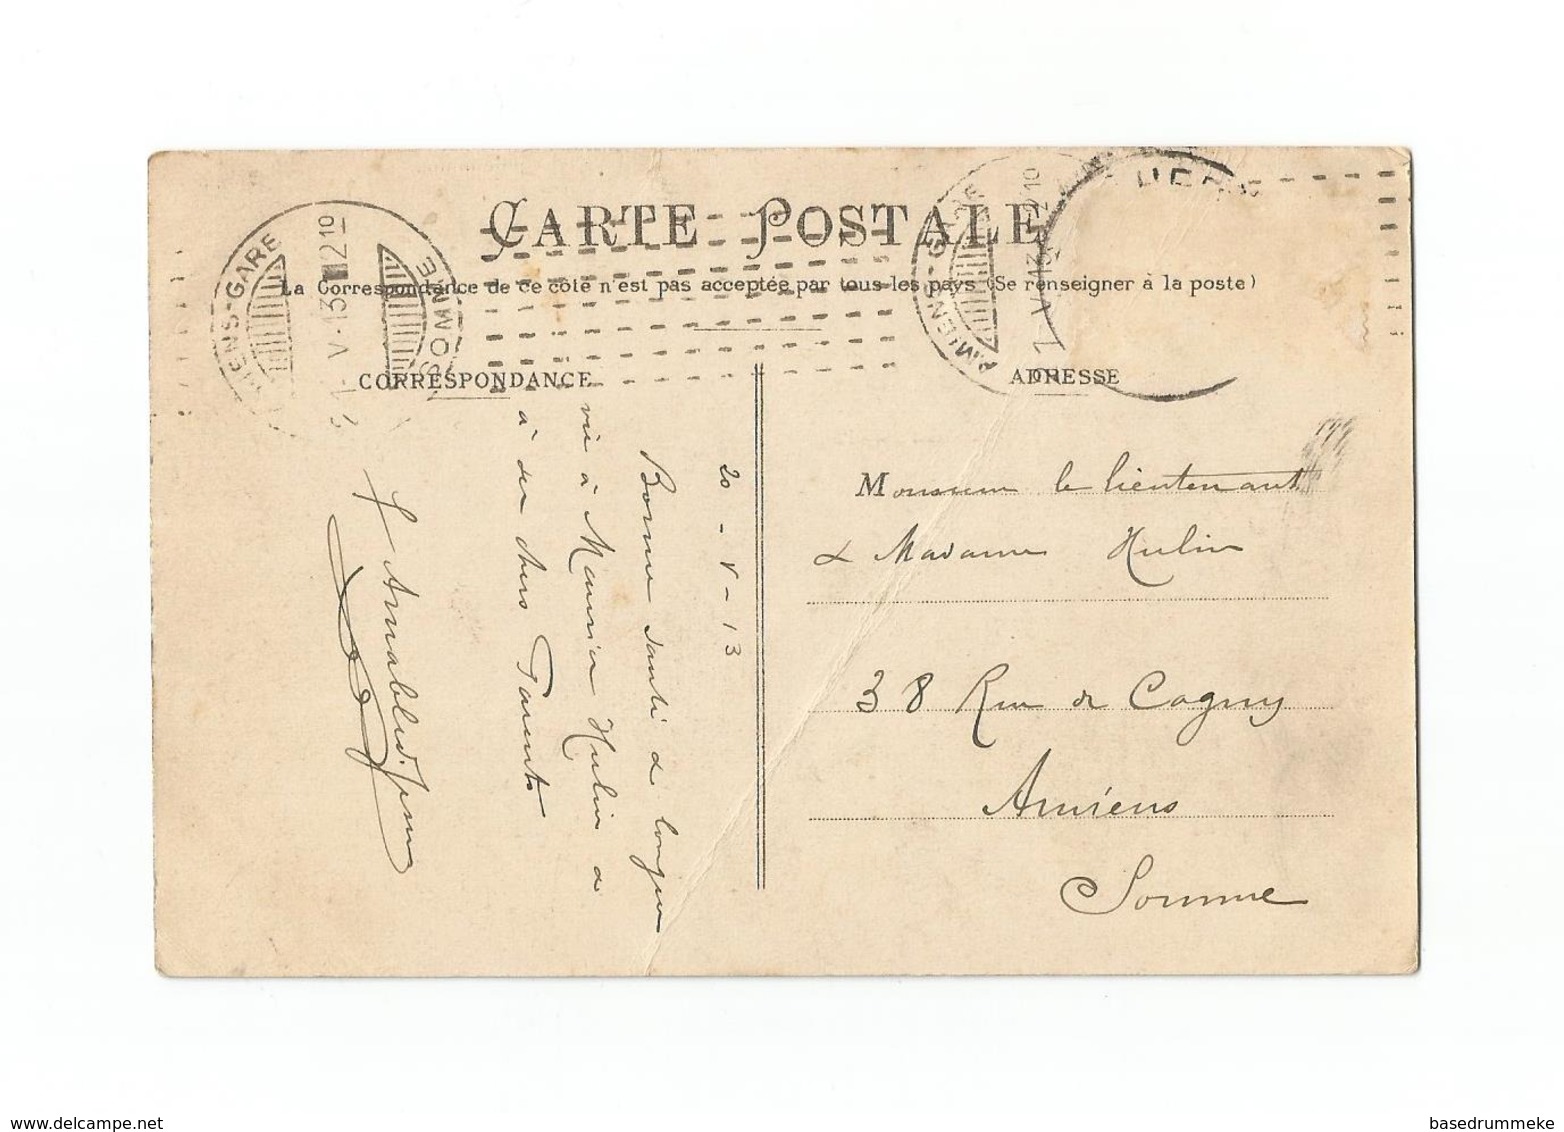 CARTE POSTALE
La Correspondance de ce côté n'est pas acceptée par tous les pays (Se renseigner à la poste)
CORRESPONDANCE
ADRESSE
20 - V - 13
Bonne santé & longue
vie à Maurice Hulin &
à ses chers Parents
Monsieur le lieutenant
& Madame Hulin
38 Rue de Cagny
Amiens
Somme
AMIENS-GARE
21-V-13 12 10
SOMME
AMIENS-GARE
21-V-13 12 10
www.delcampe.net
basedrummeke